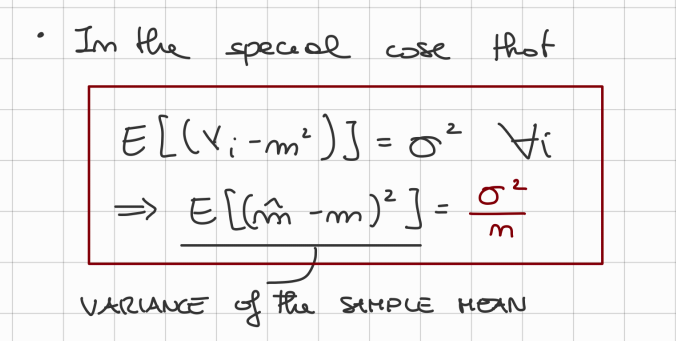 • In the special case that
E[(Y_i - m²)] = σ² ∀i
⇒ E[(m̂ - m)²] = σ²/n
VARIANCE of the SAMPLE MEAN